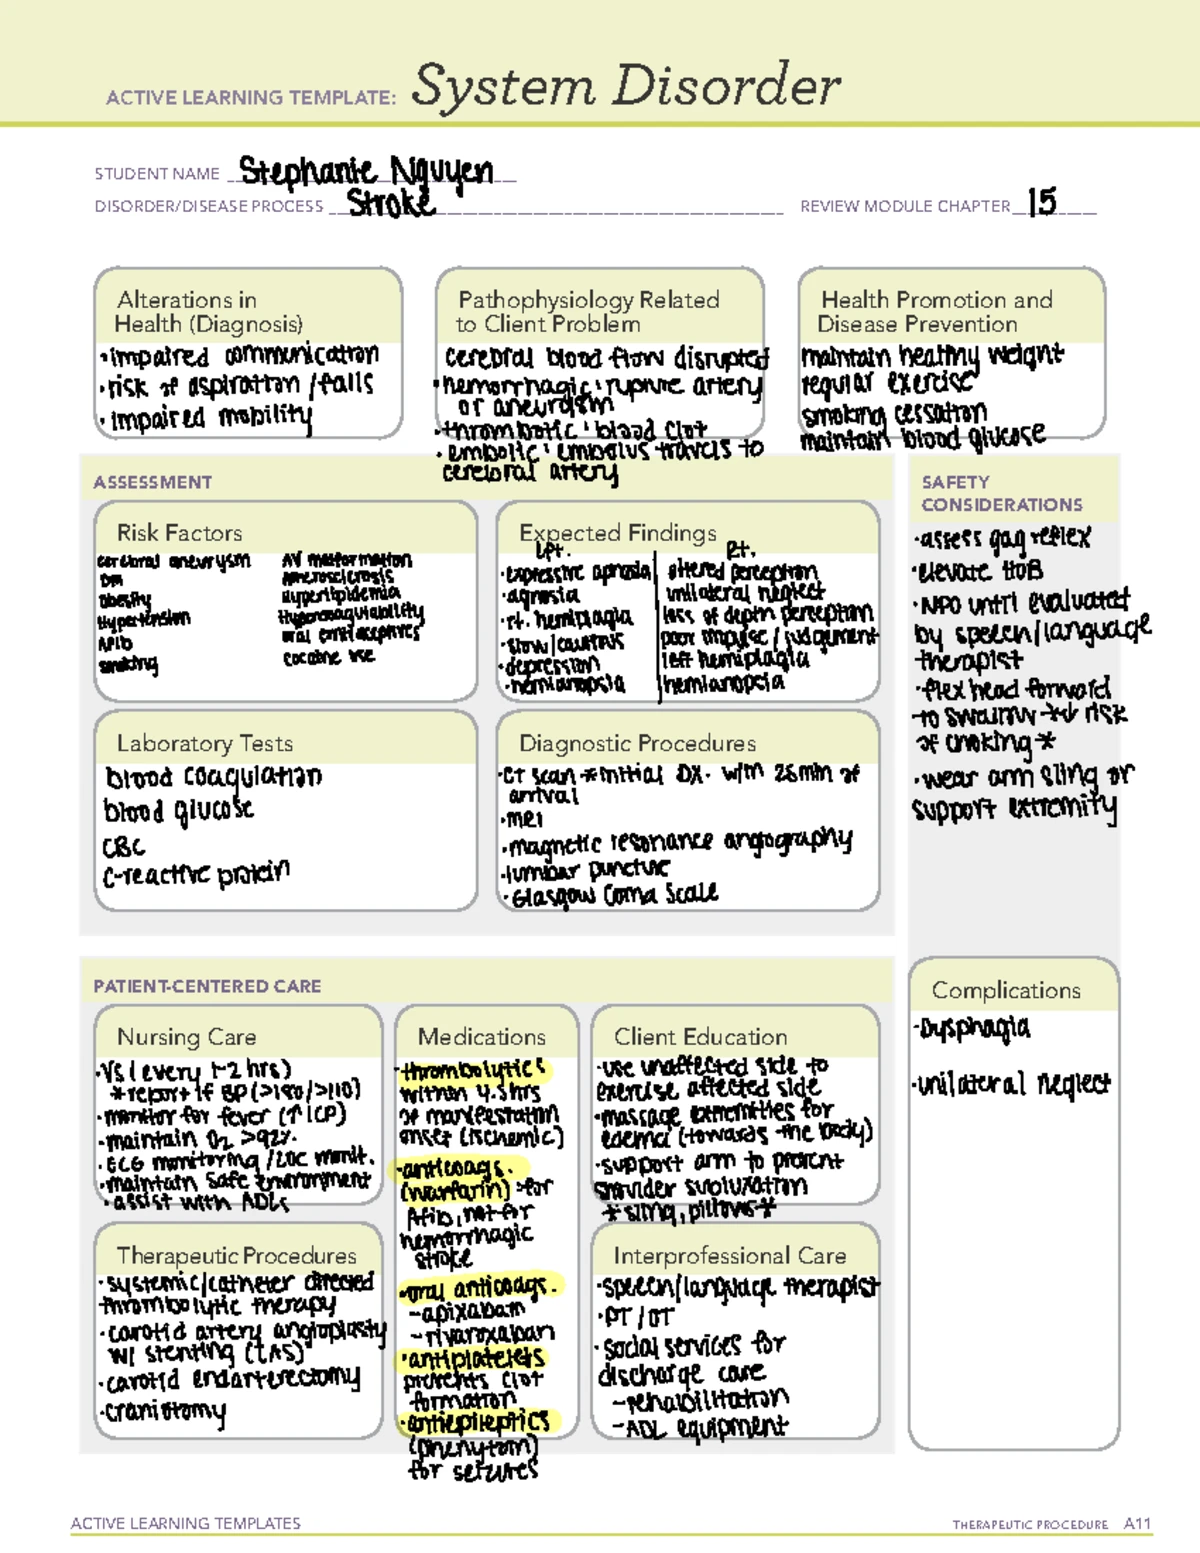 ACTIVE LEARNING TEMPLATE: System Disorder
STUDENT NAME Stephanie Nguyen
DISORDER/DISEASE PROCESS Stroke
REVIEW MODULE CHAPTER 15
Alterations in
Health (Diagnosis)
·impaired communication
·risk of aspiration/falls
·impaired mobility
Pathophysiology Related
to Client Problem
cerebral blood flow disrupted
·hemorrhagic: rupture artery
or aneurysm
·thrombotic: blood clot
·embolic: embolus travels to
cerebral artery
Health Promotion and
Disease Prevention
maintain healthy weight
regular exercise
smoking cessation
maintain blood glucose
ASSESSMENT
Risk Factors
cerebral aneurysm
DM
Obesity
Hypertension
AFIB
smoking
AV malformation
Atherosclerosis
Hyperlipidemia
Hypercoagulability
oral contraceptives
cocaine use
Expected Findings
Lft.
·expressive aphasia
·agnosia
·rt. hemiplagia
·slow/cautious
·depression
·hemianopsia
Rt.
altered perception
unilateral neglect
loss of depth perception
poor impulse/judgement
left hemiplagia
hemianopsia
Laboratory Tests
blood coagulation
blood glucose
CBC
c-reactive protein
Diagnostic Procedures
·CT scan *initial DX. w/in 25min of
arrival
·MRI
·magnetic resonance angography
·lumbar puncture
·Glasgow Coma Scale
SAFETY
CONSIDERATIONS
·assess gag reflex
·elevate HOB
·NPO until evaluated
by speech/language
therapist
·flex head forward
to swallow *↓ risk
of choking*
·wear arm sling or
support extremity
PATIENT-CENTERED CARE
Nursing Care
·VS (every 1-2 hrs)
*report if BP (>180/>110)
·monitor for fever (↑ICP)
·maintain O₂ >92%.
·ECG monitoring/LOC monit.
·maintain safe environment
·assist with ADLs
Medications
·thrombolytics
within 4.5hrs
of manifestation
onset (ischemic)
·anticoags.
(warfarin) *for
Afib, not for
hemorrhagic
stroke
·oral anticoags.
-apixaban
-rivaroxaban
·antiplatelets
prevents clot
formation
·antiepileptics
(phenytoin)
for seizures
Client Education
·use unaffected side to
exercise affected side
·massage extremities for
edema (towards the body)
·support arm to prevent
shoulder
*sling, pillows*
Therapeutic Procedures
·systemic/catheter directed
thrombolytic therapy
·carotid artery angioplasty
w/ stenting (CAS)
·carotid endarterectomy
·craniotomy
Interprofessional Care
·speech/language therapist
·PT/OT
·social services for
discharge care
-rehabilitation
-ADL equipment
Complications
·Dysphagia
·unilateral neglect
ACTIVE LEARNING TEMPLATES
THERAPEUTIC PROCEDURE A11